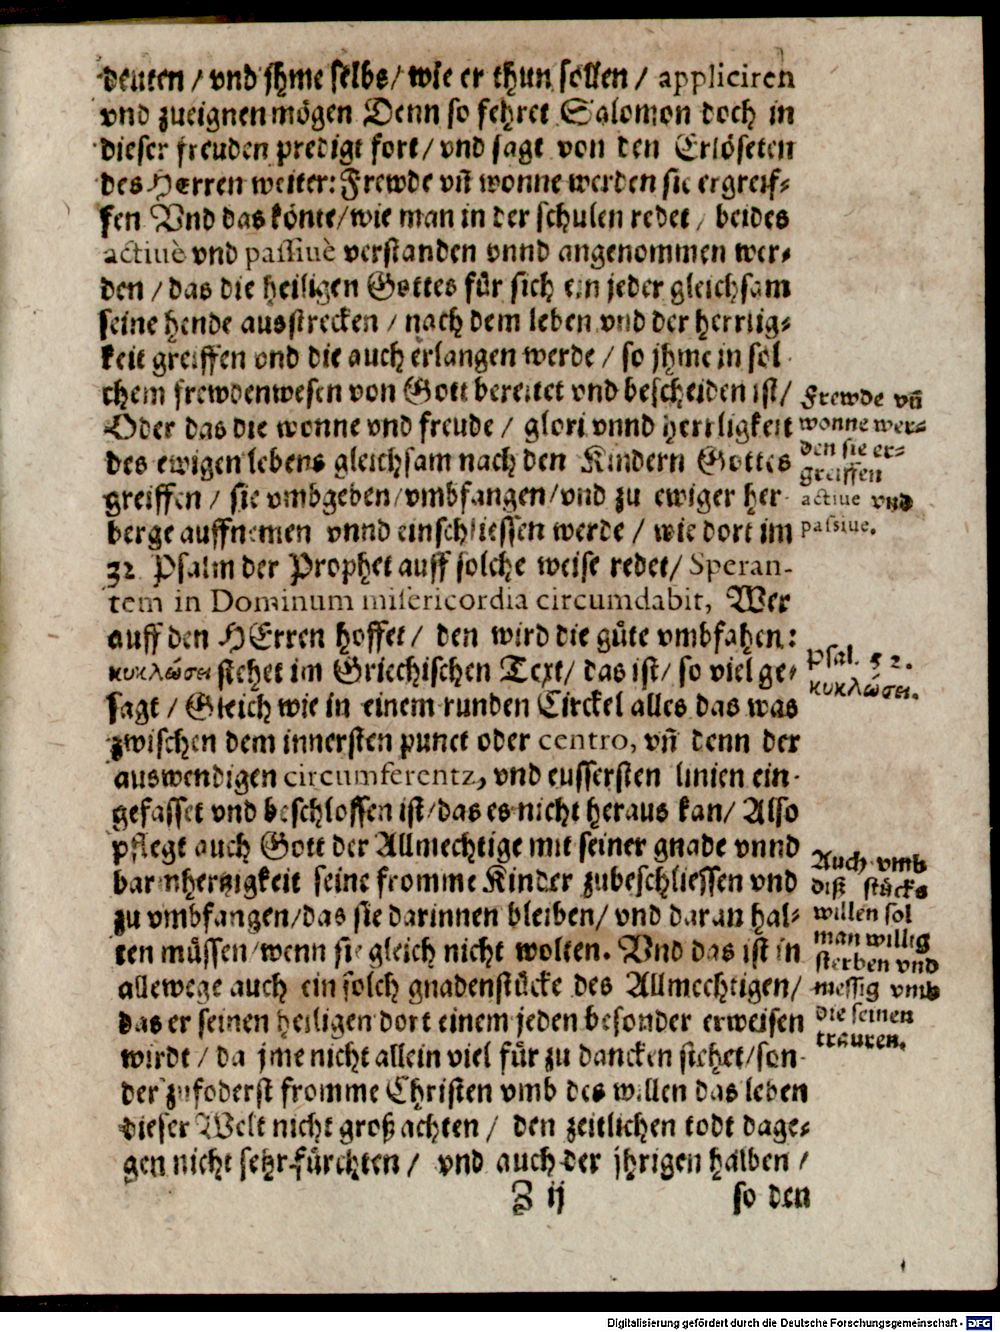 deuten / vnd jhme selbs / wie er thun sollen / appliciren
vnd zueignen mögen Denn so fehret Salomon doch in
dieser freuden predigt fort / vnd sagt von den Erlöseten
des HErren weiter: Frewde vñ wonne werden sie ergreif-
fen Vnd das könte / wie man in der schulen redet / beides
actiuè vnd passiuè verstanden vnnd angenommen wer-
den / das die heiligen Gottes für sich ein jeder gleichsam
seine hende ausstrecken / nach dem leben vnd der herrlig-
keit greiffen vnd die auch erlangen werde / so jhme in sol
chem frewdenwesen von Gott bereitet vnd bescheiden ist /
Oder das die wonne vnd freude / glori vnnd herrligkeit
des ewigen lebens gleichsam nach den Kindern Gottes
greiffen / sie vmbgeben / vmbfangen / vnd zu ewiger her
berge auffnemen vnnd einschliessen werde / wie dort im
32 Psalm der Prophet auff solche weise redet / Speran-
tem in Dominum misericordia circumdabit, Wer
auff den HErren hoffet / den wird die güte vmbfahen:
κυκλώσει stehet im Griechischen Text / das ist / so viel ge-
sagt / Gleich wie in einem runden Circkel alles das was
zwischen dem innersten punct oder centro, vñ denn der
auswendigen circumferentz, vnd eussersten linien ein-
gefasset vnd beschlossen ist / das es nicht heraus kan / Also
pflegt auch Gott der Allmechtige mit seiner gnade vnnd
barmhertzigkeit seine fromme Kinder zubeschliessen vnd
zu vmbfangen / das sie darinnen bleiben / vnd daran hal-
ten müssen / wenn sie gleich nicht wolten. Vnd das ist in
allewege auch ein solch gnadenstücke des Allmechtigen /
das er seinen heiligen dort einem jeden besonder erweisen
wirdt / da jme nicht allein viel für zu dancken stehet / son-
der zufoderst fromme Christen vmb des willen das leben
dieser Welt nicht groß achten / den zeitlichen todt dage-
gen nicht sehr fürchten / vnd auch der jhrigen halben /
Z ij so den
Frewde vñ
wonne wer-
den sie er-
greiffen
actiue vnd
passiue.
Psal. 32.
κυκλώσει.
Auch vmb
diß stücks
willen sol
man willig
sterben vnd
messig vmb
die seinen
trauren.
Digitalisierung gefördert durch die Deutsche Forschungsgemeinschaft - DFG